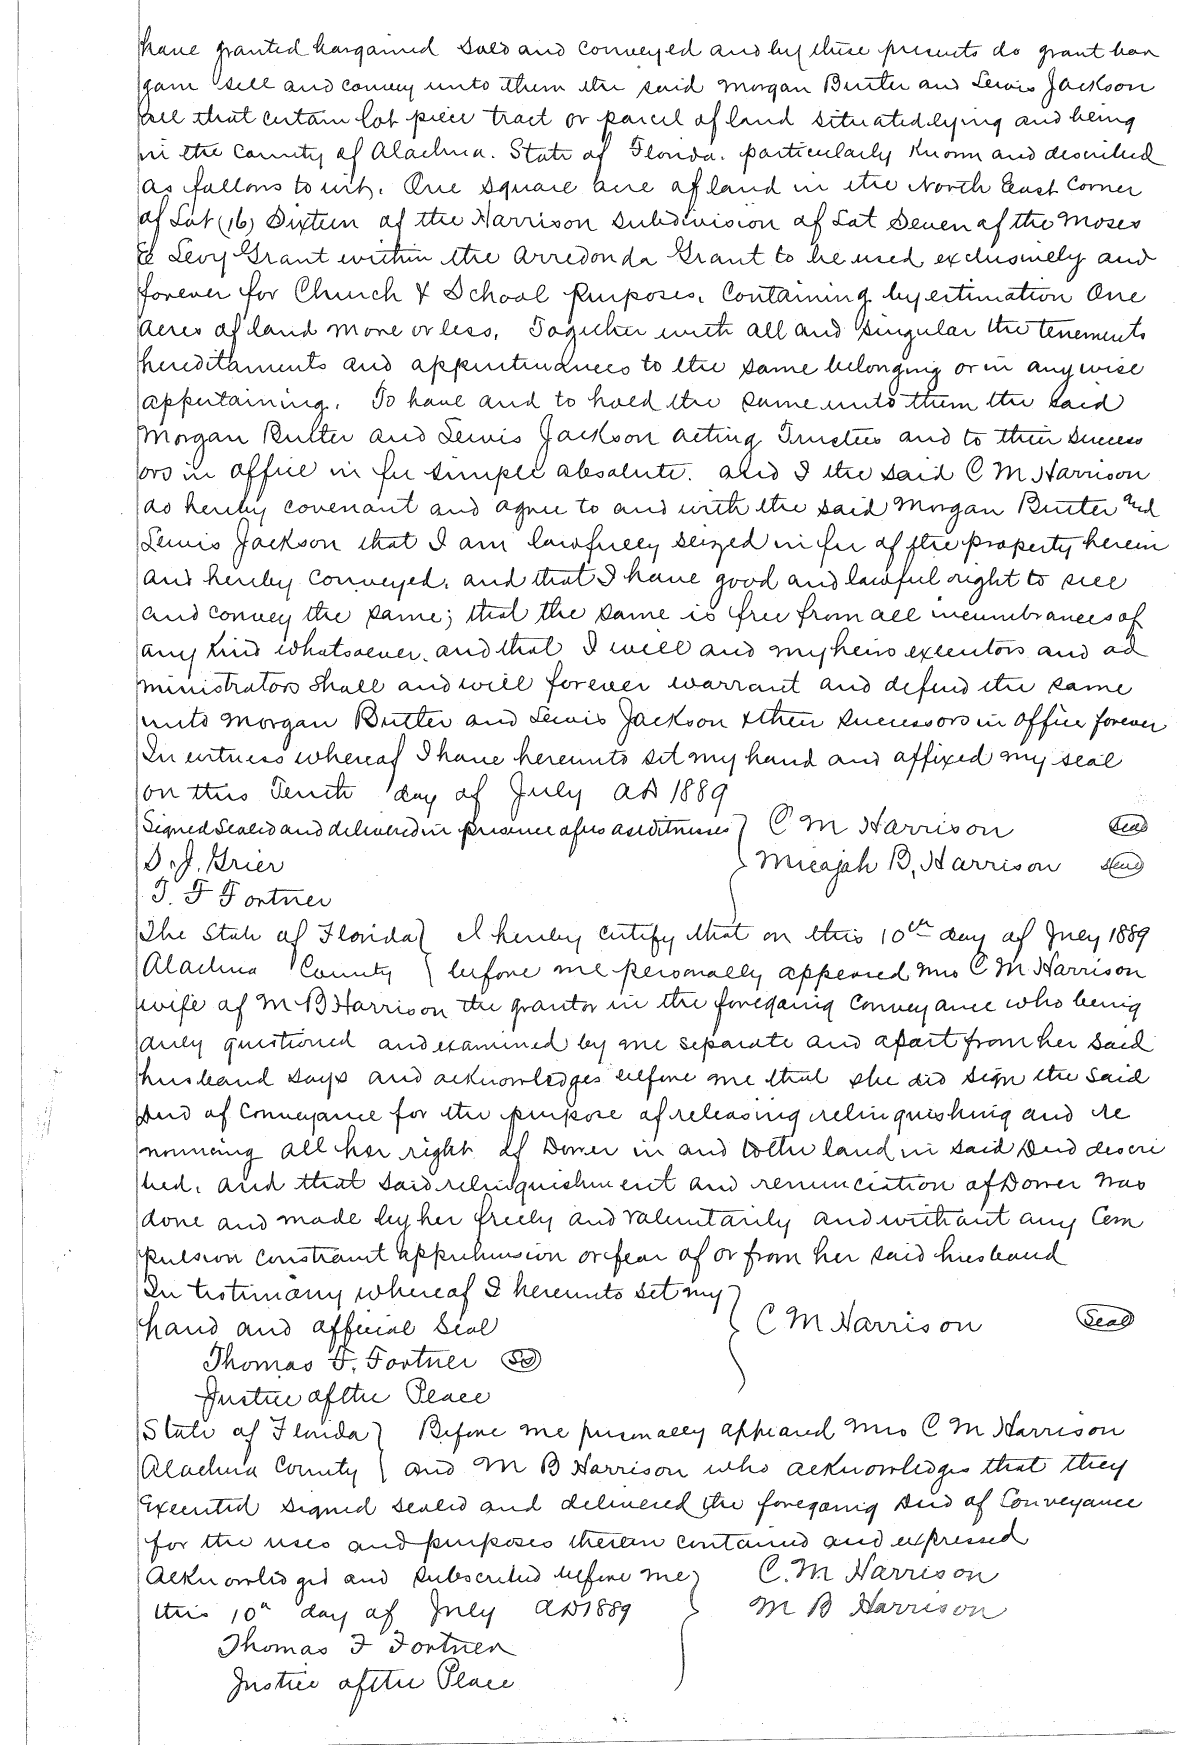 have granted bargained sold and conveyed and by these presents do grant bar
gain sell and convey unto them the said Morgan Butler and Lewis Jackson
all that certain lot piece tract or parcel of land situated lying and being
in the County of Alachua. State of Florida. particularly known and described
as follows to wit, One square acre of land in the North East Corner
of Lot (16) Sixteen of the Harrison Subdivision of Lot Seven of the Moses
E Levy Grant within the Arredonda Grant to be used exclusively and
forever for Church & School purposes. Containing by estimation One
acres of land more or less, Together with all and singular the tenements
hereditaments and appurtenances to the same belonging or in anywise
appertaining. To have and to hold the same unto them the said
Morgan Butler and Lewis Jackson acting Trustees and to their success
ors in office in fee simple absolute. and I the said C M Harrison
do hereby covenant and agree to and with the said Morgan Butler and
Lewis Jackson that I am lawfully seized in fee of the property herein
and hereby conveyed, and that I have good and lawful right to sell
and convey the same; that the same is free from all incumbrances of
any kind whatsoever, and that I will and my heirs executors and ad
ministrators shall and will forever warrant and defend the same
unto Morgan Butler and Lewis Jackson & their successors in office forever
In witness whereof I have hereunto set my hand and affixed my seal
on this Tenth day of July AD 1889
Signed Sealed and delivered in presence of us as witnesses } C M Harrison Seal
D. J. Grier } Micajah B. Harrison Seal
T. F Fortner
The State of Florida } I hereby certify that on this 10th day of July 1889
Alachua County } before me personally appeared Mrs C M Harrison
wife of M B Harrison the grantor in the foregoing conveyance who being
duly questioned and examined by me separate and apart from her said
husband says and acknowledges before me that she did sign the said
Deed of Conveyance for the purpose of releasing relinquishing and re
nouncing all her right of Dower in and to the land in said Deed descri
bed, and that said relinquishment and renunciation of Dower was
done and made by her freely and voluntarily and without any Com
pulsion constraint apprehension or fear of or from her said husband
In testimony whereof I hereunto set my }
hand and official Seal } C M Harrison Seal
Thomas F. Fortner Sd
Justice of the Peace
State of Florida } Before me personally appeared Mrs C M Harrison
Alachua County } and M B Harrison who acknowledges that they
Executed signed sealed and delivered the foregoing Deed of Conveyance
for the uses and purposes therein contained and expressed
Acknowledged and subscribed before me } C. M Harrison
this 10th day of July AD 1889 } M B Harrison
Thomas F Fortner
Justice of the Peace